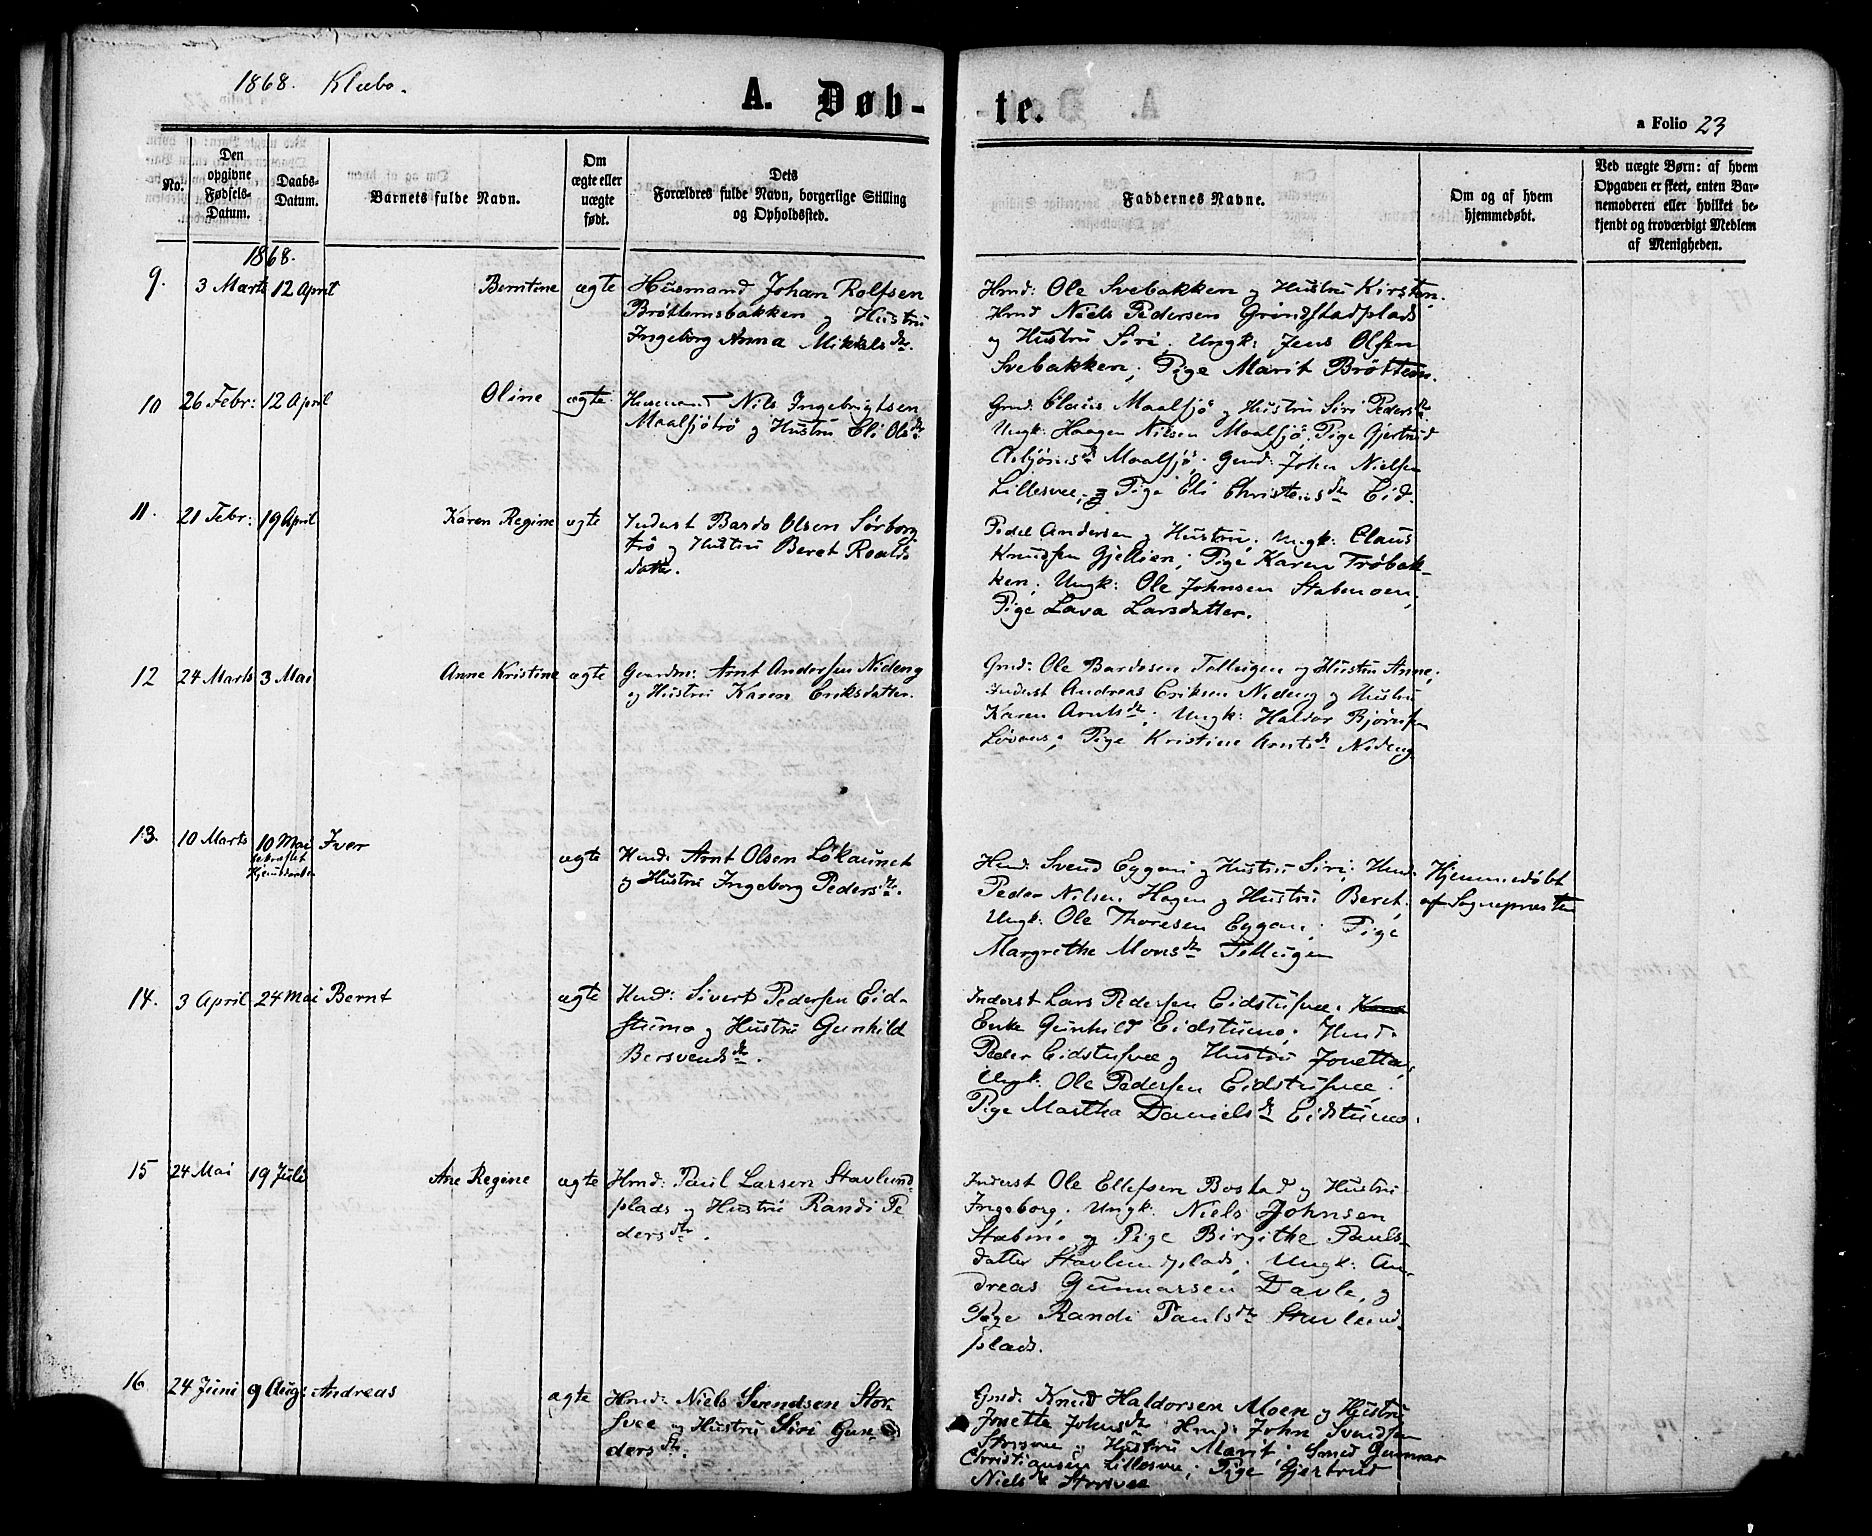 1868. Klæbo.
A. Døb-
te.
a Folio 23
No.
Den
opgivne
Fødsels-
Datum.
Daabs-
Datum.
Barnets fulde Navn.
Om
ægte eller
uægte
født.
Dets
Forældres fulde Navn, borgerlige Stilling
og Opholdssted.
Faddernes Navne.
Om og af hvem
hjemmedøbt.
Ved uægte Børn: af hvem
Opgaven er skeet, enten Bar-
nemoderen eller hvilket be-
kjendt og troværdigt Medlem
af Menigheden.
1868.
9. 3 Marts 12 April Berntine ægte
Husmand Johan Rolfsen
Brøttemsbakken og Hustru
Ingeborg Anna Mikkelsdtr.
Hmd: Ole Svebakken og Hustru Kirsten.
Hmd Niels Pedersen Grindstadplads
og Hustru Siri. Ungk: Jens Olsen
Svebakken; Pige Marit Brøttem.
10 26 Febr: 12 April Oline ægte
Husmand Nils Ingebrigtsen
Maalsjøtrø og Hustru Eli Olsdtr
Gmd: Claus Maalsjø og Hustru Siri Pedersdtr
Ungk: Haagen Nilsen Maalsjø, Pige Gjertrud
Maalsjø; Gmd: John Nielsen
Lillesvee, og Pige Eli Christensdtr Eid.
11. 21 Febr: 19 April Karen Regine ægte
Inderst Bardo Olsen Sørborg
trø og Hustru Beret Roalds
datter.
Peder Andersen og Hustru; Ungk: Claus
Knudsen Gjellien; Pige Karen Trøbak-
ken; Ungk: Ole Johnsen Stabenoen;
Pige Lava Larsdatter.
12 24 Marts 3 Mai Anne Kristine ægte
Gaardm: Arnt Andersen Nideng
og Hustru Karen Eriksdatter.
Gmd: Ole Bardosen Tellugen og Hustru Anne;
Inderst Andreas Eriksen Nideng og Hustru
Karen Arntsdtr; Ungk: Haldor Bjørnsen
Løvaas; Pige Kristine Arntsdr Nideng
13. 10 Marts 10 Mai Iver ægte
Hmd: Arnt Olsen Løkaunet
og Hustru Ingeborg Pedersdtr.
Hmd: Svend Eggen og Hustru Siri; Hmd.
Peder Nilsen Hagen og Hustru Beret;
Ungk: Ole Thoresen Eggen; Pige
Margrethe Monsdtr Tellugen
Hjemmedøbt
af Sognepresten
14. 3 April 24 Mai Bernt ægte
Hmd: Sivert Pedersen Eid-
stumo og Hustru Gunhild
Bersvendsdtr.
Inderst Lars Pedersen Eidstusvee.
Enke Gunhild Eidstumo; Hmd.
Peder Eidstusvee og Hustru Jonetta;
Ungk: Ole Pedersen Eidstusvee;
Pige Martha Danielsdtr Eidstumo.
15 24 Mai 19 Juli Ane Regine ægte
Hmd: Paul Larsen Stavlund-
plads og Hustru Randi Pe
dersdtr.
Inderst Ole Ellefsen Bostad og Hustru
Ingeborg; Ungk: Niels Johnsen
og Pige Birgithe Pauls-
datter Stavlundplads; Ungk: An-
dreas Gunnarsen Davle, og
Pige Randi Paulsdtr Stavlund-
plads.
16 24 Juni 9 Aug: Andreas ægte
Hmd: Niels Svendsen Stor
svee og Hustru Siri Gun-
dersdtr.
Gmd: Knud Haldorsen Moen og Hustru
Jonette Johnsdtr Hmd: John Svendsen
Storsvee og Hustru Marit; Smed Gunnar
Christiansen Lillesvee; Pige Gjertrud
Nielsdtr Storsvee